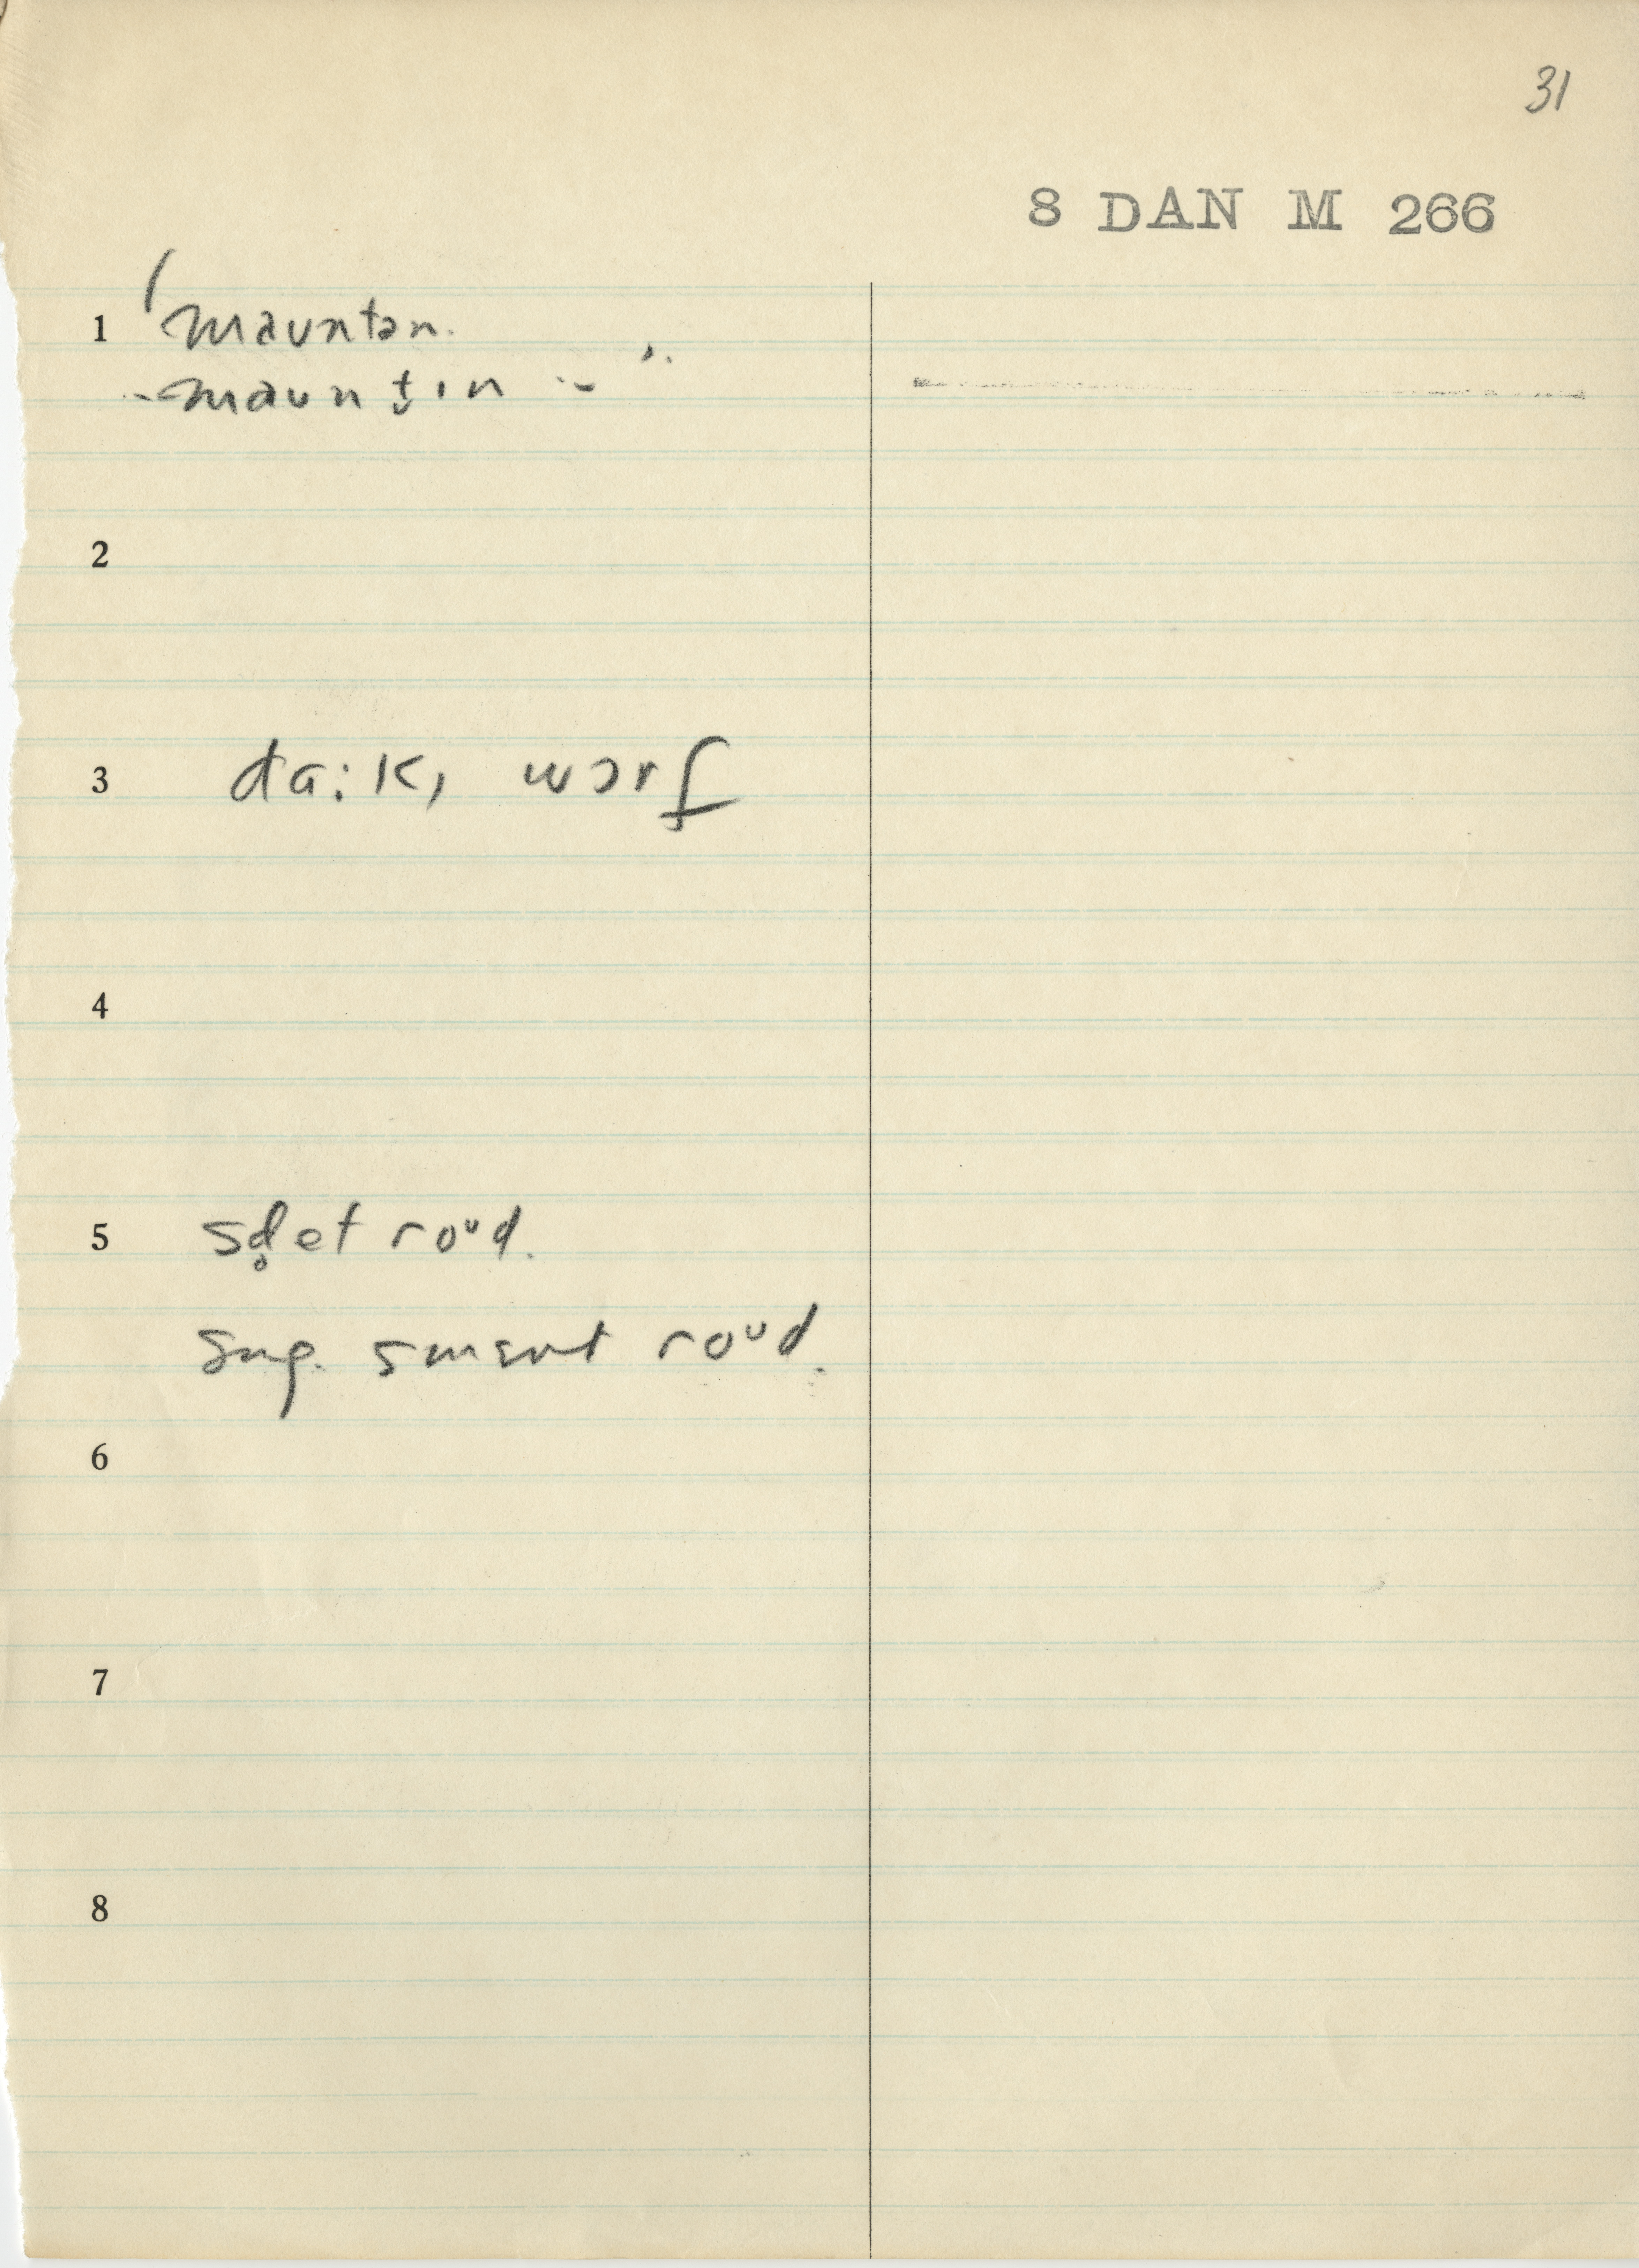 31
8 DAN M 266
1 mauntən.
mauntɪn
2
3 da:k, wɔrf
4
5 sd̥et roᵘd.
sug. smɛnt roᵘd.
6
7
8